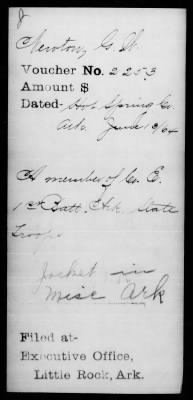 Newton, G. W.
Voucher No. 2253
Amount $
Dated- Hot Spring Co.
Ark. June 13/64
A member of Co. E.
1st Batt. Ark. State
Troops
Jacket in
Misc Ark
Filed at-
Executive Office,
Little Rock, Ark.